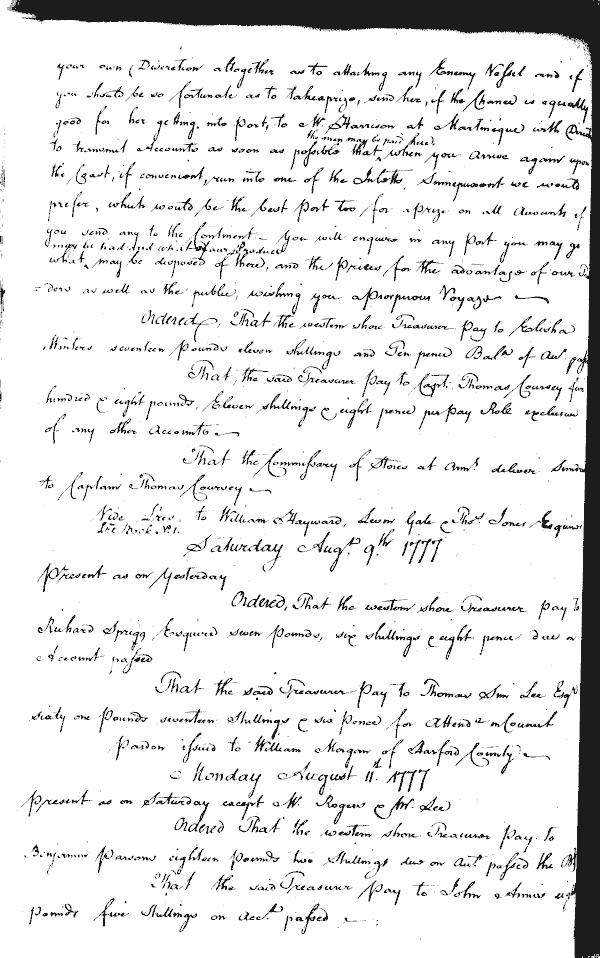 your own Discretion altogether as to attacking any Enemy Vessel and if
you should be so fortunate as to take a prize, send her, if the Chance is equally
good for her getting into Port, to Mr Harrison at Martinique with
the men may be paid here
to transmit Accounts as soon as possible that, when you arrive again upon
the Coast, if convenient, run into one of the Inletts, Sinnepuxent we would
prefer, which would be the best Port too, for a prize on all Accounts if
you send any to the Contment – You will enquire in any Port you may go
may be had and what of our Produce
what may be disposed of there, and the Prices for the advantage of our
ders as well as the public, wishing you a Prosperous Voyage
Ordered, That the western shore Treasurer Pay to Elisha
Winters seventeen Pounds eleven shillings and Ten pence Bala of Act
That, the said Treasurer Pay to Capt. Thomas Coursey
hundred & eight pounds, Eleven shillings & eight pence per Pay Role exclusive
of any other Accounts
That the Commissary of Stores at deliver
to Captain Thomas Coursey
Vide Lres. to William Hayward, Levin Gale & Thos. Jones Esquires
Lre Book No. 1.
Saturday Augt. 9th 1777
Present as on Yesterday
Ordered, That the western shore Treasurer pay to
Richard Sprigg Esquire seven Pounds, six shillings & eight pence due on
Account passed
That the said Treasurer Pay to Thomas Sim Lee Esqr
sixty one Pounds seventeen Shillings & six Pence for Attendce in Council
Pardon issued to William Morgan of Harford County
Monday August 11th 1777
Present as on Saturday except Mr. Rogers & Mr. Lee
Ordered That the western shore Treasurer pay to
Benjamin Parsons eighteen Pounds two Shillings due on Act. passed the
That the said Treasurer Pay to John Annis
pounds five Shillings on Acct. passed